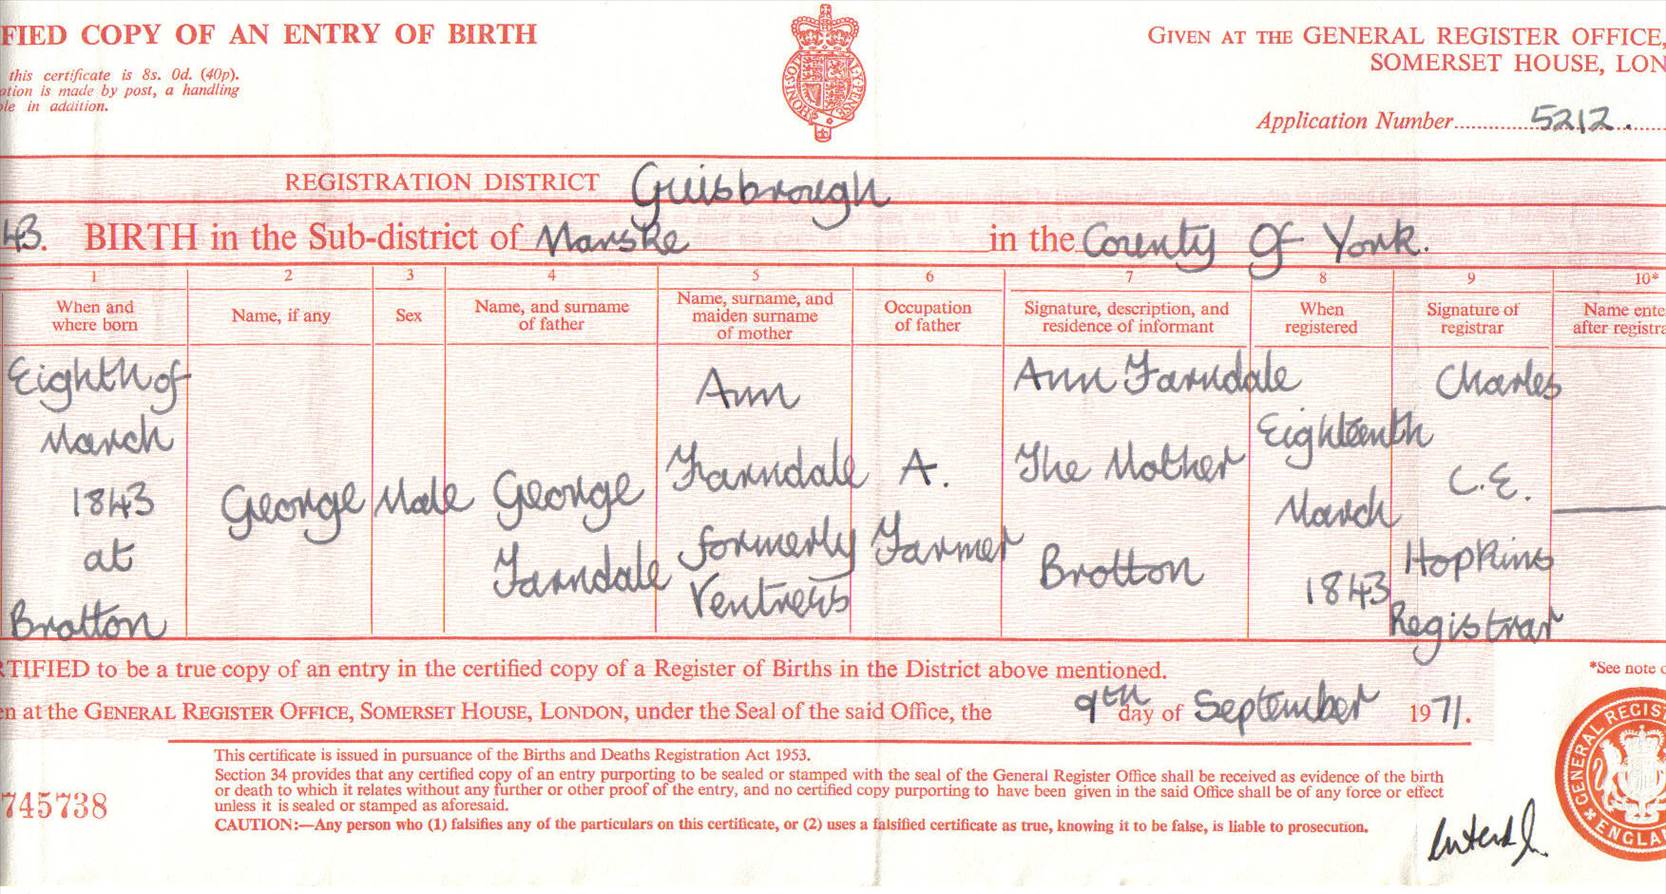 FIED COPY OF AN ENTRY OF BIRTH
GIVEN AT THE GENERAL REGISTER OFFICE,
SOMERSET HOUSE, LON
this certificate is 8s. 0d. (40p).
ation is made by post, a handling
ble in addition.
Application Number 5212.
REGISTRATION DISTRICT Guisbrough
43. BIRTH in the Sub-district of Marske in the County Of York.
1 2 3 4 5 6 7 8 9 10*
When and where born
Name, if any
Sex
Name, and surname of father
Name, surname, and maiden surname of mother
Occupation of father
Signature, description, and residence of informant
When registered
Signature of registrar
Name ente
after registra
Eighth of
March
1843
at
Brotton
George
Male
George
Farndale
Ann
Farndale
formerly
Ventress
A.
Farmer
Ann Farndale
The Mother
Brotton
Eighteenth
March
1843
Charles
C.E.
Hopkins
Registrar
RTIFIED to be a true copy of an entry in the certified copy of a Register of Births in the District above mentioned.
*See note o
en at the GENERAL REGISTER OFFICE, SOMERSET HOUSE, LONDON, under the Seal of the said Office, the 9th day of September 1971.
This certificate is issued in pursuance of the Births and Deaths Registration Act 1953.
Section 34 provides that any certified copy of an entry purporting to be sealed or stamped with the seal of the General Register Office shall be received as evidence of the birth
or death to which it relates without any further or other proof of the entry, and no certified copy purporting to have been given in the said Office shall be of any force or effect
unless it is sealed or stamped as aforesaid.
CAUTION:—Any person who (1) falsifies any of the particulars on this certificate, or (2) uses a falsified certificate as true, knowing it to be false, is liable to prosecution.
745738
GENERAL REGIST
ENGLA